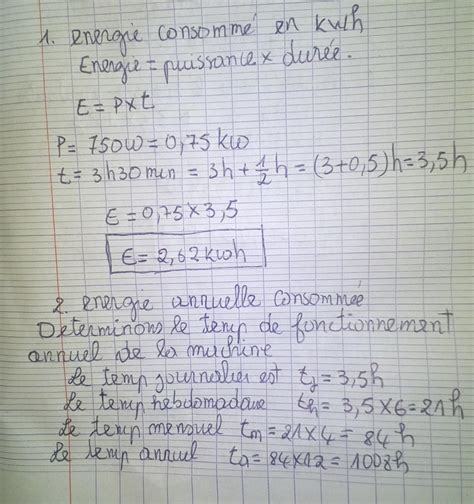 1. energie consommé en kwh
Energie = puissance x durée.
E = P x t
P = 750W = 0,75 kw
t = 3h30min = 3h + 1/2 h = (3+0,5)h = 3,5h
E = 0,75 x 3,5
E = 2,62 kwh
2. energie annuelle consommée
Determinons le temp de fonctionnement
annuel de la machine
le temp journalier est tj = 3,5h
le temp hebdomadaire th = 3,5 x 6 = 21h
le temp mensuel tm = 21 x 4 = 84h
le temp annuel ta = 84 x 12 = 1008h